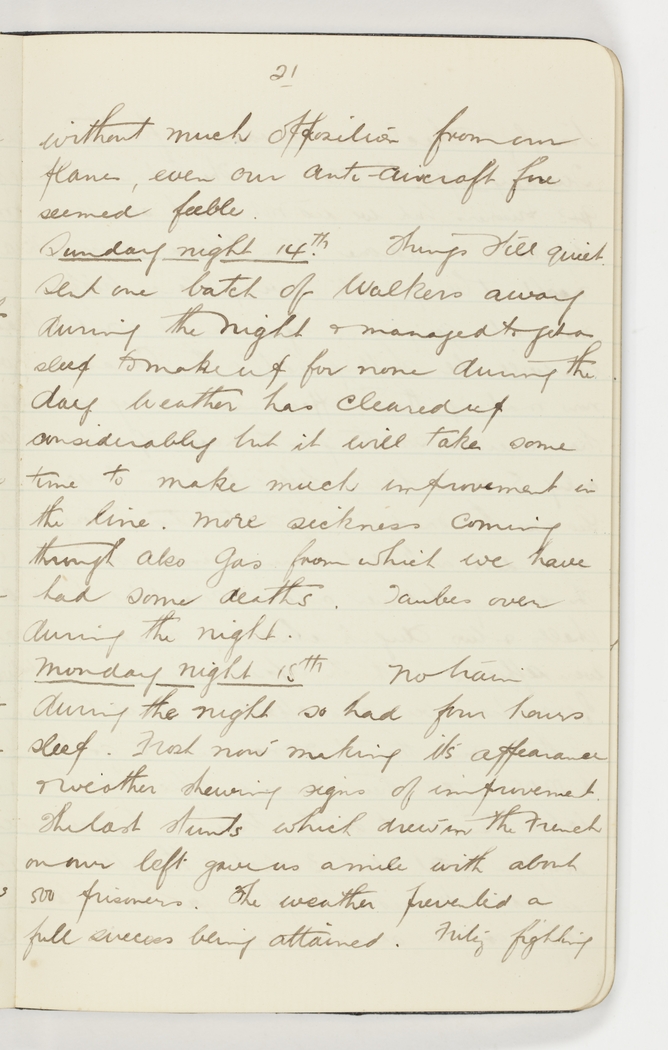 21
without much opposition from our
planes, even our anti-aircraft fire
seemed feeble.
Sunday night 14th. Things still quiet.
Sent one batch of Walkers away
during the night & managed to get a
sleep to make up for none during the
day Weather has cleared up
considerably but it will take some
time to make much improvement in
the line. More sickness coming
through also gas from which we have
had some deaths. Taubes over
during the night.
Monday night 15th No train
during the night so had four hours
sleep. Frost now making its appearance
& weather shewing signs of improvement.
The last stunts which drew in the French
on our left gave us a mile with about
500 prisoners. The weather prevented a
full success being attained. Fritz fighting